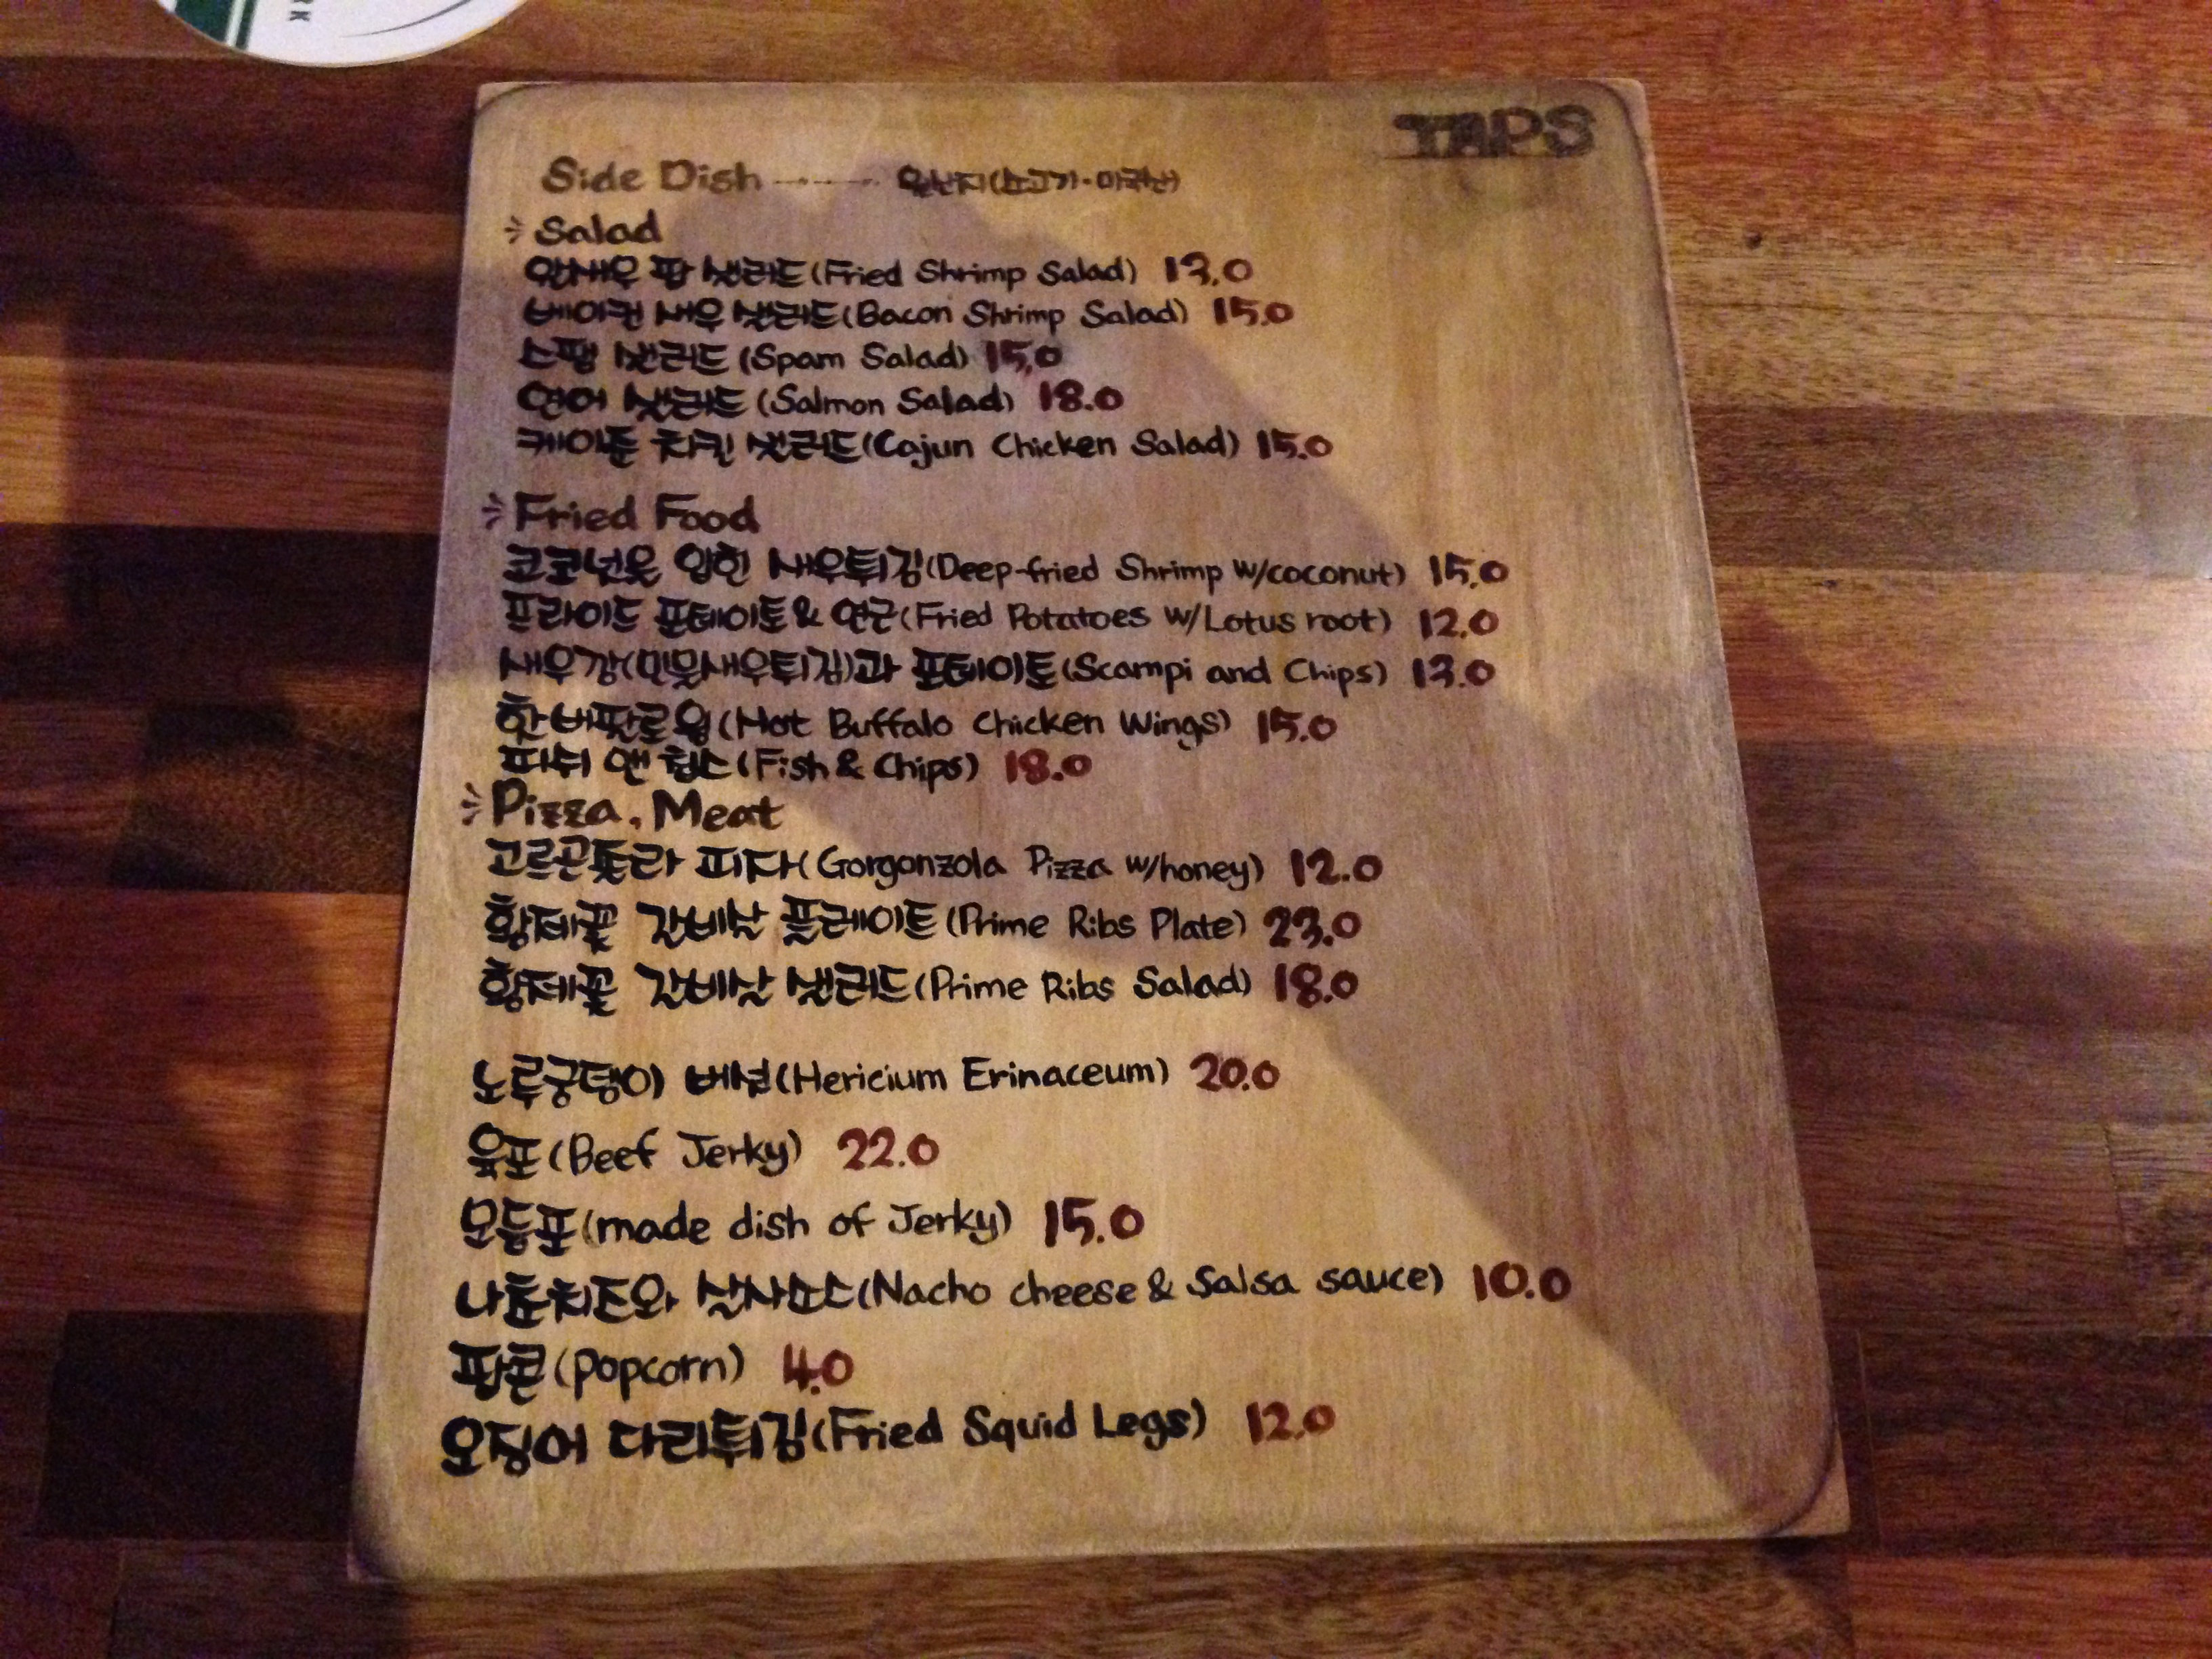 RK
TAPS
Side Dish 원산지(소고기-미국산)
Salad
왕새우 팝 샐러드(Fried Shrimp Salad) 13.0
베이컨 새우 샐러드(Bacon Shrimp Salad) 15.0
스팸 샐러드(Spam Salad) 15.0
연어 샐러드(Salmon Salad) 18.0
케이준 치킨 샐러드(Cajun Chicken Salad) 15.0
Fried Food
코코넛옷 입힌 새우튀김(Deep-fried Shrimp w/coconut) 15.0
프라이드 포테이토& 연근(Fried Potatoes w/Lotus root) 12.0
새우깡(민물새우튀김)과 포테이토(Scampi and Chips) 13.0
핫 버팔로윙(Hot Buffalo Chicken Wings) 15.0
피쉬 앤 칩스(Fish & Chips) 18.0
Pizza, Meat
고르곤졸라 피자(Gorgonzola Pizza w/honey) 12.0
황제꽃 갈비살 플레이트(Prime Ribs Plate) 23.0
황제꽃 갈비살 샐러드(Prime Ribs Salad) 18.0
노루궁뎅이 버섯(Hericium Erinaceum) 20.0
육포(Beef Jerky) 22.0
모듬포(made dish of Jerky) 15.0
나쵸치즈와 살사소스(Nacho cheese & Salsa sauce) 10.0
팝콘(popcorn) 4.0
오징어 다리튀김(Fried Squid Legs) 12.0